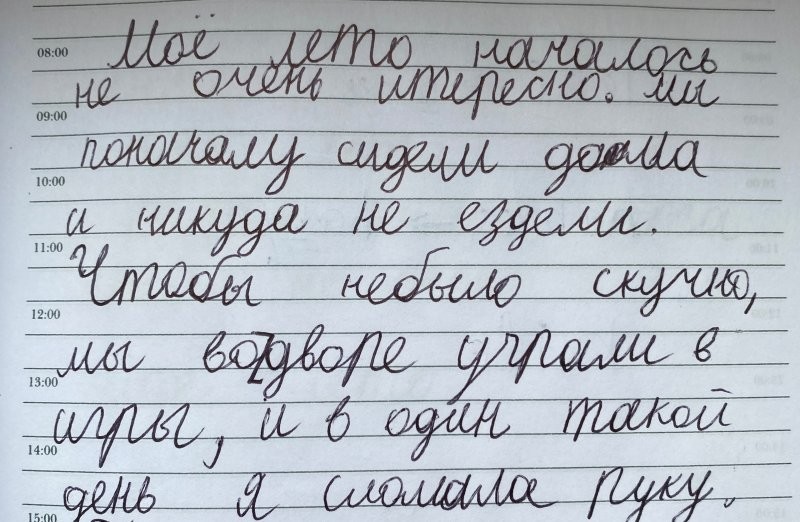 08:00 Моё лето началось
не очень итересно. мы
09:00
поначалу сидели дома
10:00
и никуда не ездели.
11:00
Чтобы небыло скучно,
12:00
мы во дворе учрали в
13:00
игры, и в один такой
14:00
день я сломала руку.
15:00